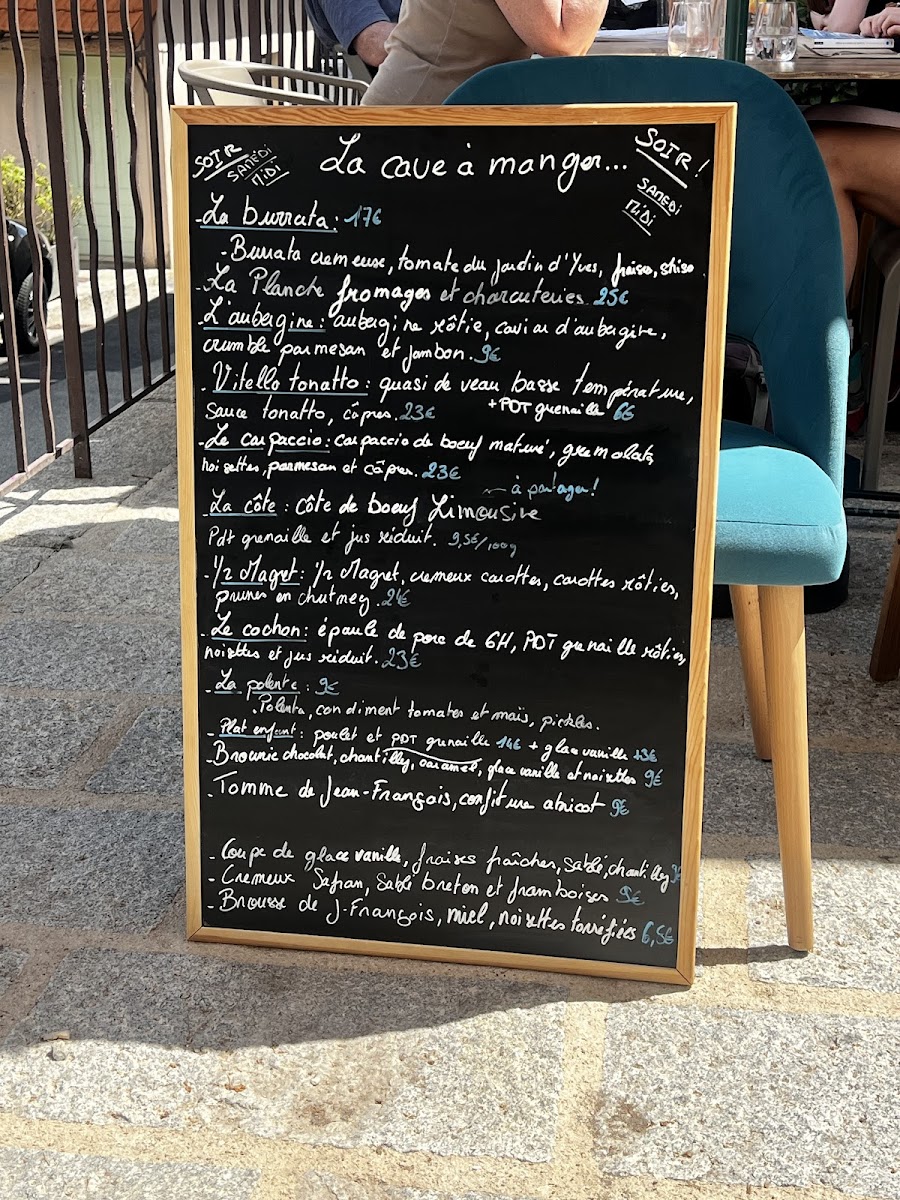 SOIR
SAMEDI
MIDI
La cave à manger...
SOIR !
SAMEDI
MIDI
- La burrata : 17€
- Burrata cremeuse, tomate du jardin d'Yves, fraises, shiso
- La Planche fromages et charcuteries. 25€
- L'aubergine : aubergine rôtie, caviar d'aubergine,
crumble parmesan et jambon. 9€
- Vitello tonatto : quasi de veau basse température,
+ PDT grenaille 6€
sauce tonatto, câpres. 23€
- Le carpaccio : carpaccio de boeuf maturé, gremolata,
noisettes, parmesan et câpres. 23€
~ à partager !
- La côte : côte de boeuf Limousine
Pdt grenaille et jus réduit. 9,5€/100g
- 1/2 Magret : 1/2 Magret, cremeux carottes, carottes rôties,
prunes en chutney. 24€
- Le cochon : épaule de porc de 6H, PDT grenaille rôties,
noisettes et jus réduit. 23€
- La polente : 9€
. Polenta, condiment tomates et maïs, pickles.
- Plat enfant : poulet et PDT grenaille 14€ + glace vanille +3€
- Brownie chocolat, chantilly, caramel, glace vanille et noisettes 9€
- Tomme de Jean-François, confiture abricot 9€
- Coupe de glace vanille, fraises fraîches, sablé, chantilly 9€
- Cremeux Safran, Sablé breton et framboises 9€
- Brousse de J-François, miel, noisettes torréfiées 6,5€